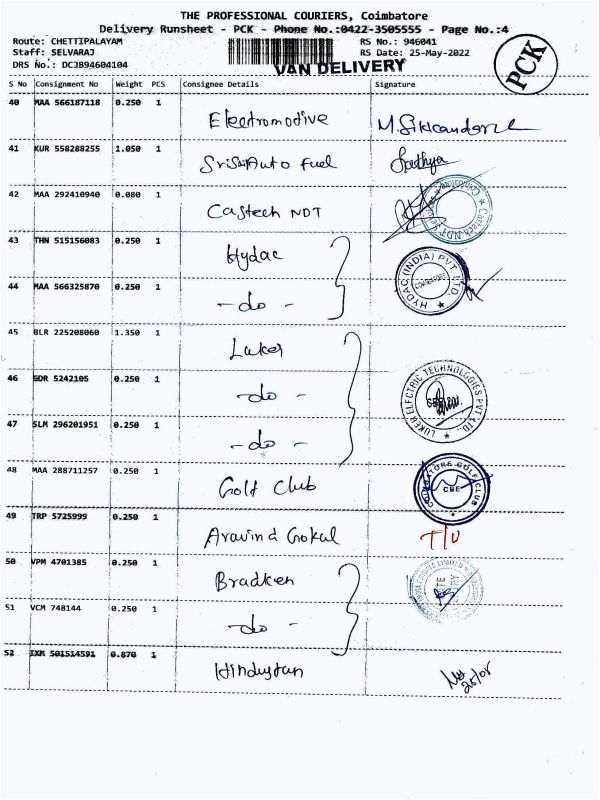 THE PROFESSIONAL COURIERS, Coimbatore
Delivery Runsheet - PCK - Phone No.:0422-3505555 - Page No.:4
Route: CHETTIPALAYAM RS No.: 946041
Staff: SELVARAJ RS Date: 25-May-2022
DRS No.: DCJB94604104 VAN DELIVERY PCK
S No Consignment No Weight PCS Consignee Details Signature
40 MAA 566187118 0.250 1 Electromotive
41 KUR 558288255 1.050 1 SriSaiAuto Fuel
42 MAA 292410940 0.080 1 Castech NDT
43 THN 515156083 0.250 1 Hydac
HYDAC (INDIA) PVT. LTD.
44 MAA 566325870 0.250 1 -do-
45 BLR 225208060 1.350 1 Luker
46 GDR 5242105 0.250 1 -do-
LUKER ELECTRIC TECHNOLOGIES PVT LTD
47 SLM 296201951 0.250 1 -do-
48 MAA 288711257 0.250 1 Golf Club
COIMBATORE GOLF CLUB
CBE
49 TRP 5725999 0.250 1 Aravind Gokul T/U
50 VPM 4701385 0.250 1 Bradken
51 VCM 748144 0.250 1 -do-
52 IXM 501514591 0.870 1 Hindustan